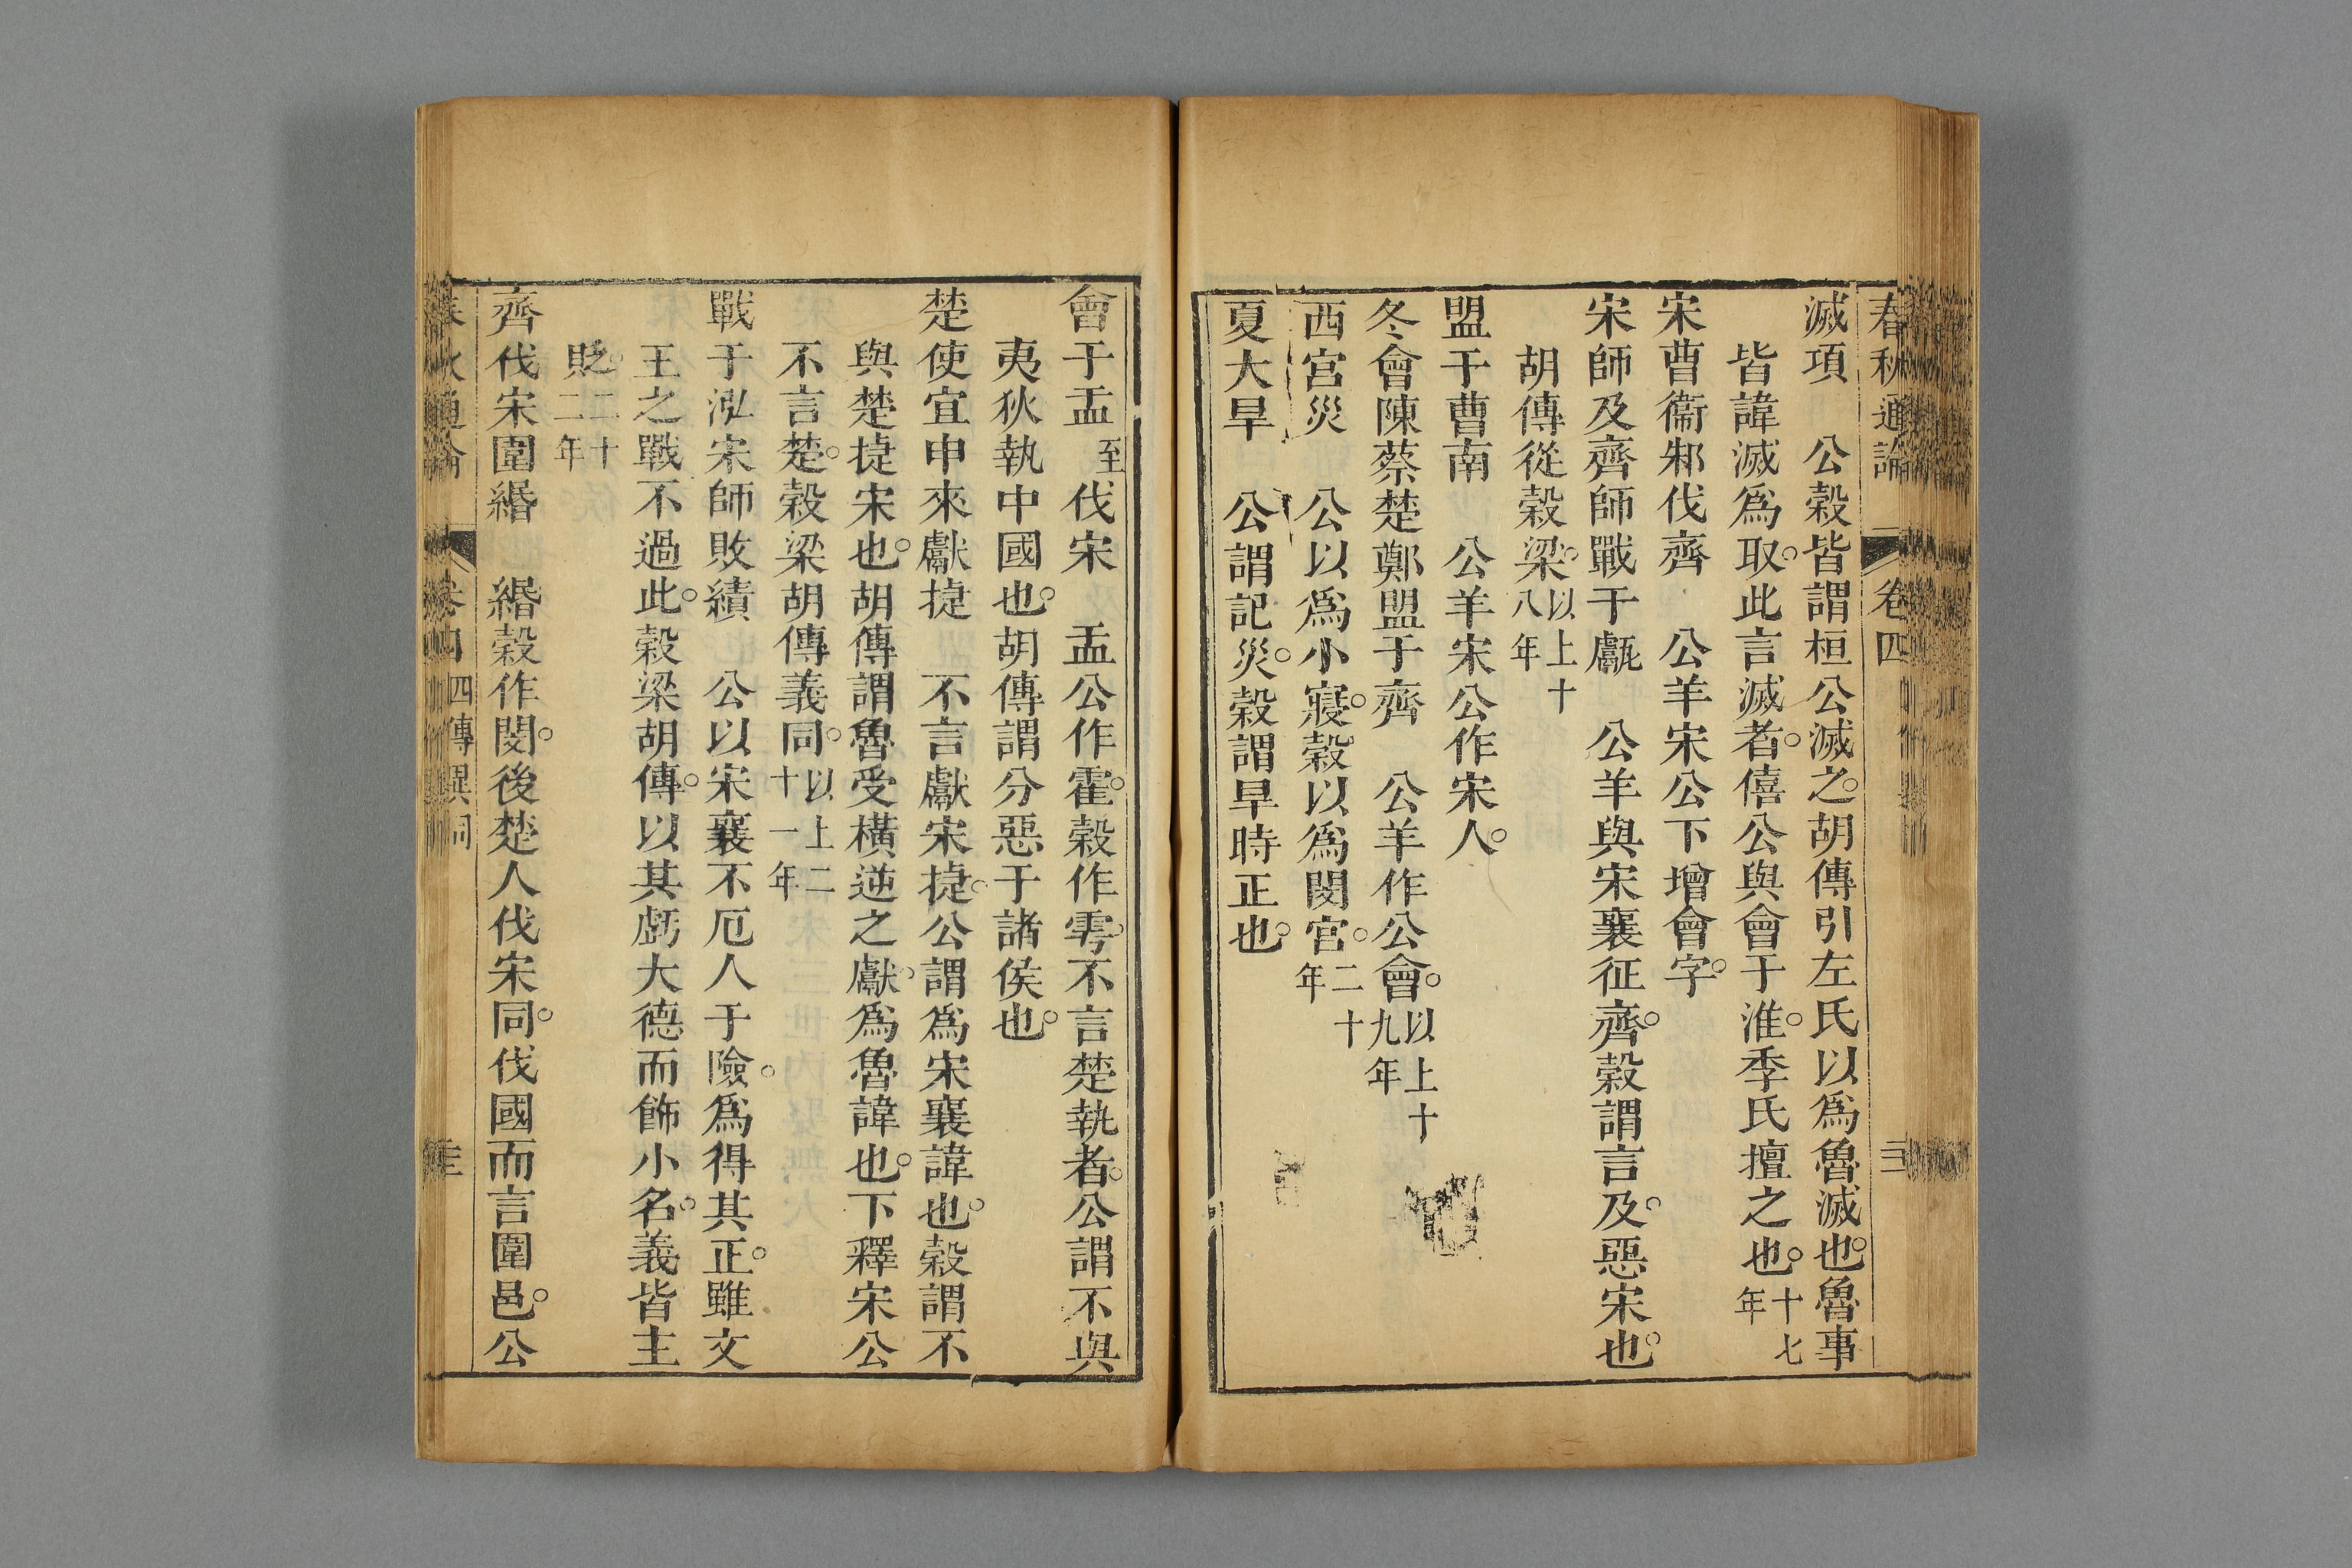 春秋通論 卷四
滅項 公穀皆謂桓公滅之。胡傳引左氏以爲魯滅也。魯事
皆諱滅爲取。此言滅者。僖公與會于淮。季氏擅之也。十七年
宋曹衞邾伐齊 公羊宋公下增會字。
宋師及齊師戰于甗 公羊與宋襄征齊。穀謂言及。惡宋也。
胡傳從穀梁。以上十八年
盟于曹南 公羊宋公作宋人。
冬會陳蔡楚鄭盟于齊 公羊作公會。以上十九年
西宮災 公以爲小寢。穀以爲閔宮。二十年
夏大旱 公謂記災。穀謂旱時正也。
會于盂至伐宋 盂公作霍。穀作雩。不言楚執者。公謂不與
夷狄執中國也。胡傳謂分惡于諸侯也。
楚使宜申來獻捷 不言獻宋捷。公謂爲宋襄諱也。穀謂不
與楚捷宋也。胡傳謂魯受橫逆之獻。爲魯諱也。下釋宋公
不言楚。穀梁胡傳義同。以上二十一年
戰于泓宋師敗績 公以宋襄不厄人于險。爲得其正。雖文
王之戰不過此。穀梁胡傳。以其虧大德而飾小名。義皆主
貶。二十二年
齊伐宋圍緡 緡穀作閔。後楚人伐宋同。伐國而言圍邑。公
卷四 四傳異同